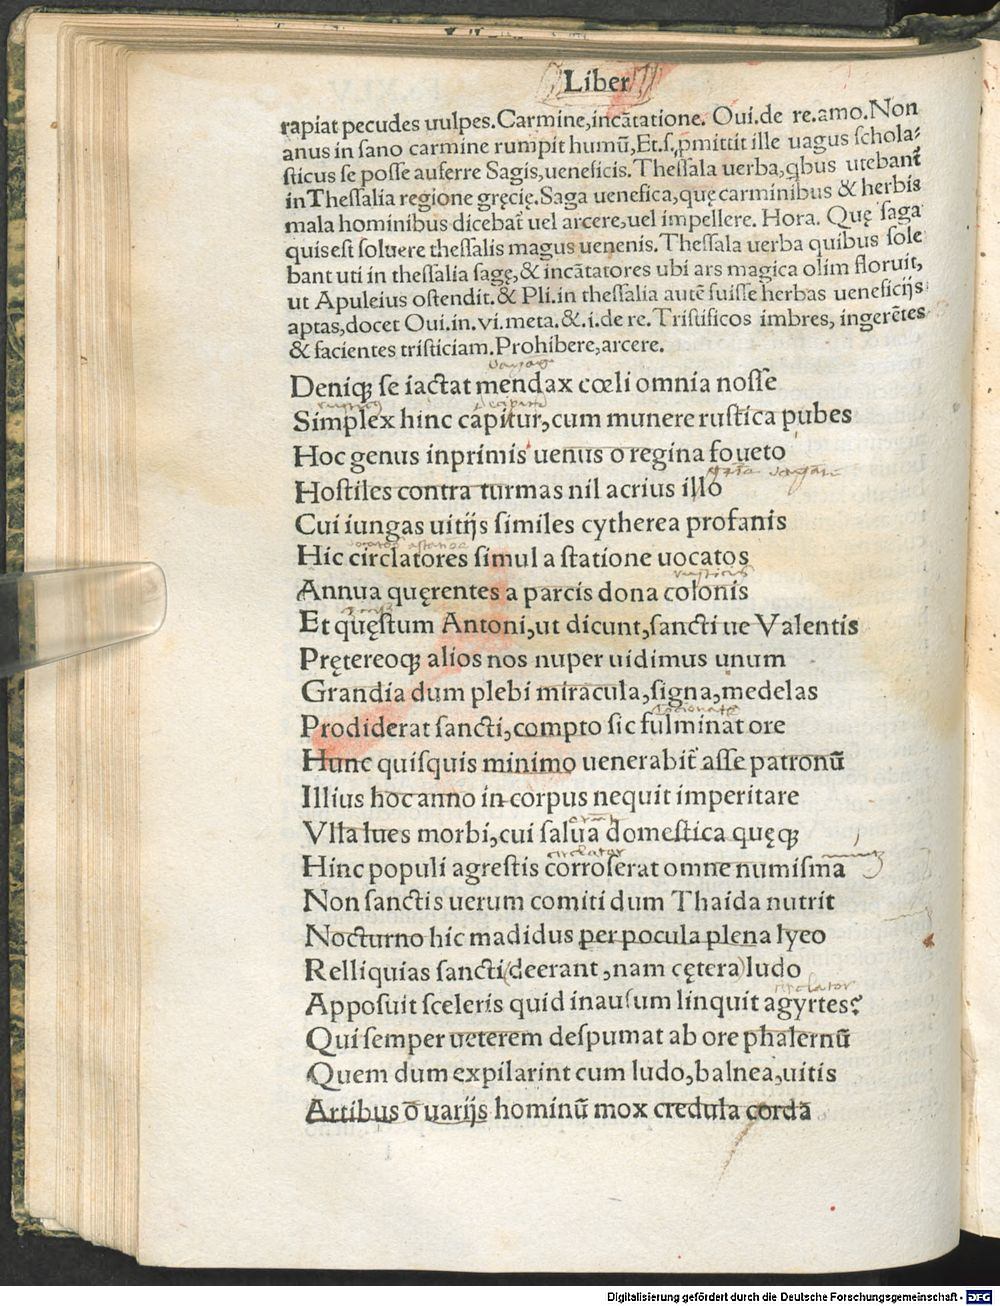 Liber
rapiat pecudes uulpes. Carmine, incãtatione. Oui. de re. amo. Non
anus in sano carmine rumpit humũ, Et. s. ꝓmittit ille uagus schola⸗
sticus se posse auferre Sagis, ueneficis. Thessala uerba, ꝗbus utebant̃
in Thessalia regione gręcię. Saga uenefica, quę carminibus & herbis
mala hominibus dicebat̃ uel arcere, uel impellere. Hora. Quę saga
quis est soluere thessalis magus uenenis. Thessala uerba quibus sole
bant uti in thessalia sagę, & incãtatores ubi ars magica olim floruit,
ut Apuleius ostendit. & Pli. in thessalia autẽ fuisse herbas ueneficijs
aptas, docet Oui. in. vi. meta. &. i. de re. Tristificos imbres, ingerẽtes
& facientes tristiciam. Prohibere, arcere.
Deniqꝫ se iactat mendax cœli omnia nosse
Simplex hinc capitur, cum munere rustica pubes
Hoc genus inprimis uenus o regina foueto
Hostiles contra turmas nil acrius illo
Cui iungas uitijs similes cytherea profanis
Hic circlatores simul a statione uocatos
rusticis
Annua quęrentes a parcis dona colonis
Et quęstum Antoni, ut dicunt, sancti ue Valentis
Prętereoqꝫ alios nos nuper uidimus unum
Grandia dum plebi miracula, signa, medelas
Prodiderat sancti, compto sic fulminat ore
Hunc quisquis minimo uenerabit̃ asse patronũ
Illius hoc anno in corpus nequit imperitare
Vlla lues morbi, cui salua domestica quęqꝫ
circlator
Hinc populi agrestis corroserat omne numisma
Non sanctis uerum comiti dum Thaida nutrit
Nocturno hic madidus per pocula plena lyeo
Relliquias sancti (deerant, nam cętera) ludo
circlator
Apposuit sceleris quid inausum linquit agyrtes?
Qui semper ueterem despumat ab ore phalernũ
Quem dum expilarint cum ludo, balnea, uitis
Artibus o uarijs hominũ mox credula corda
Digitalisierung gefördert durch die Deutsche Forschungsgemeinschaft - DFG